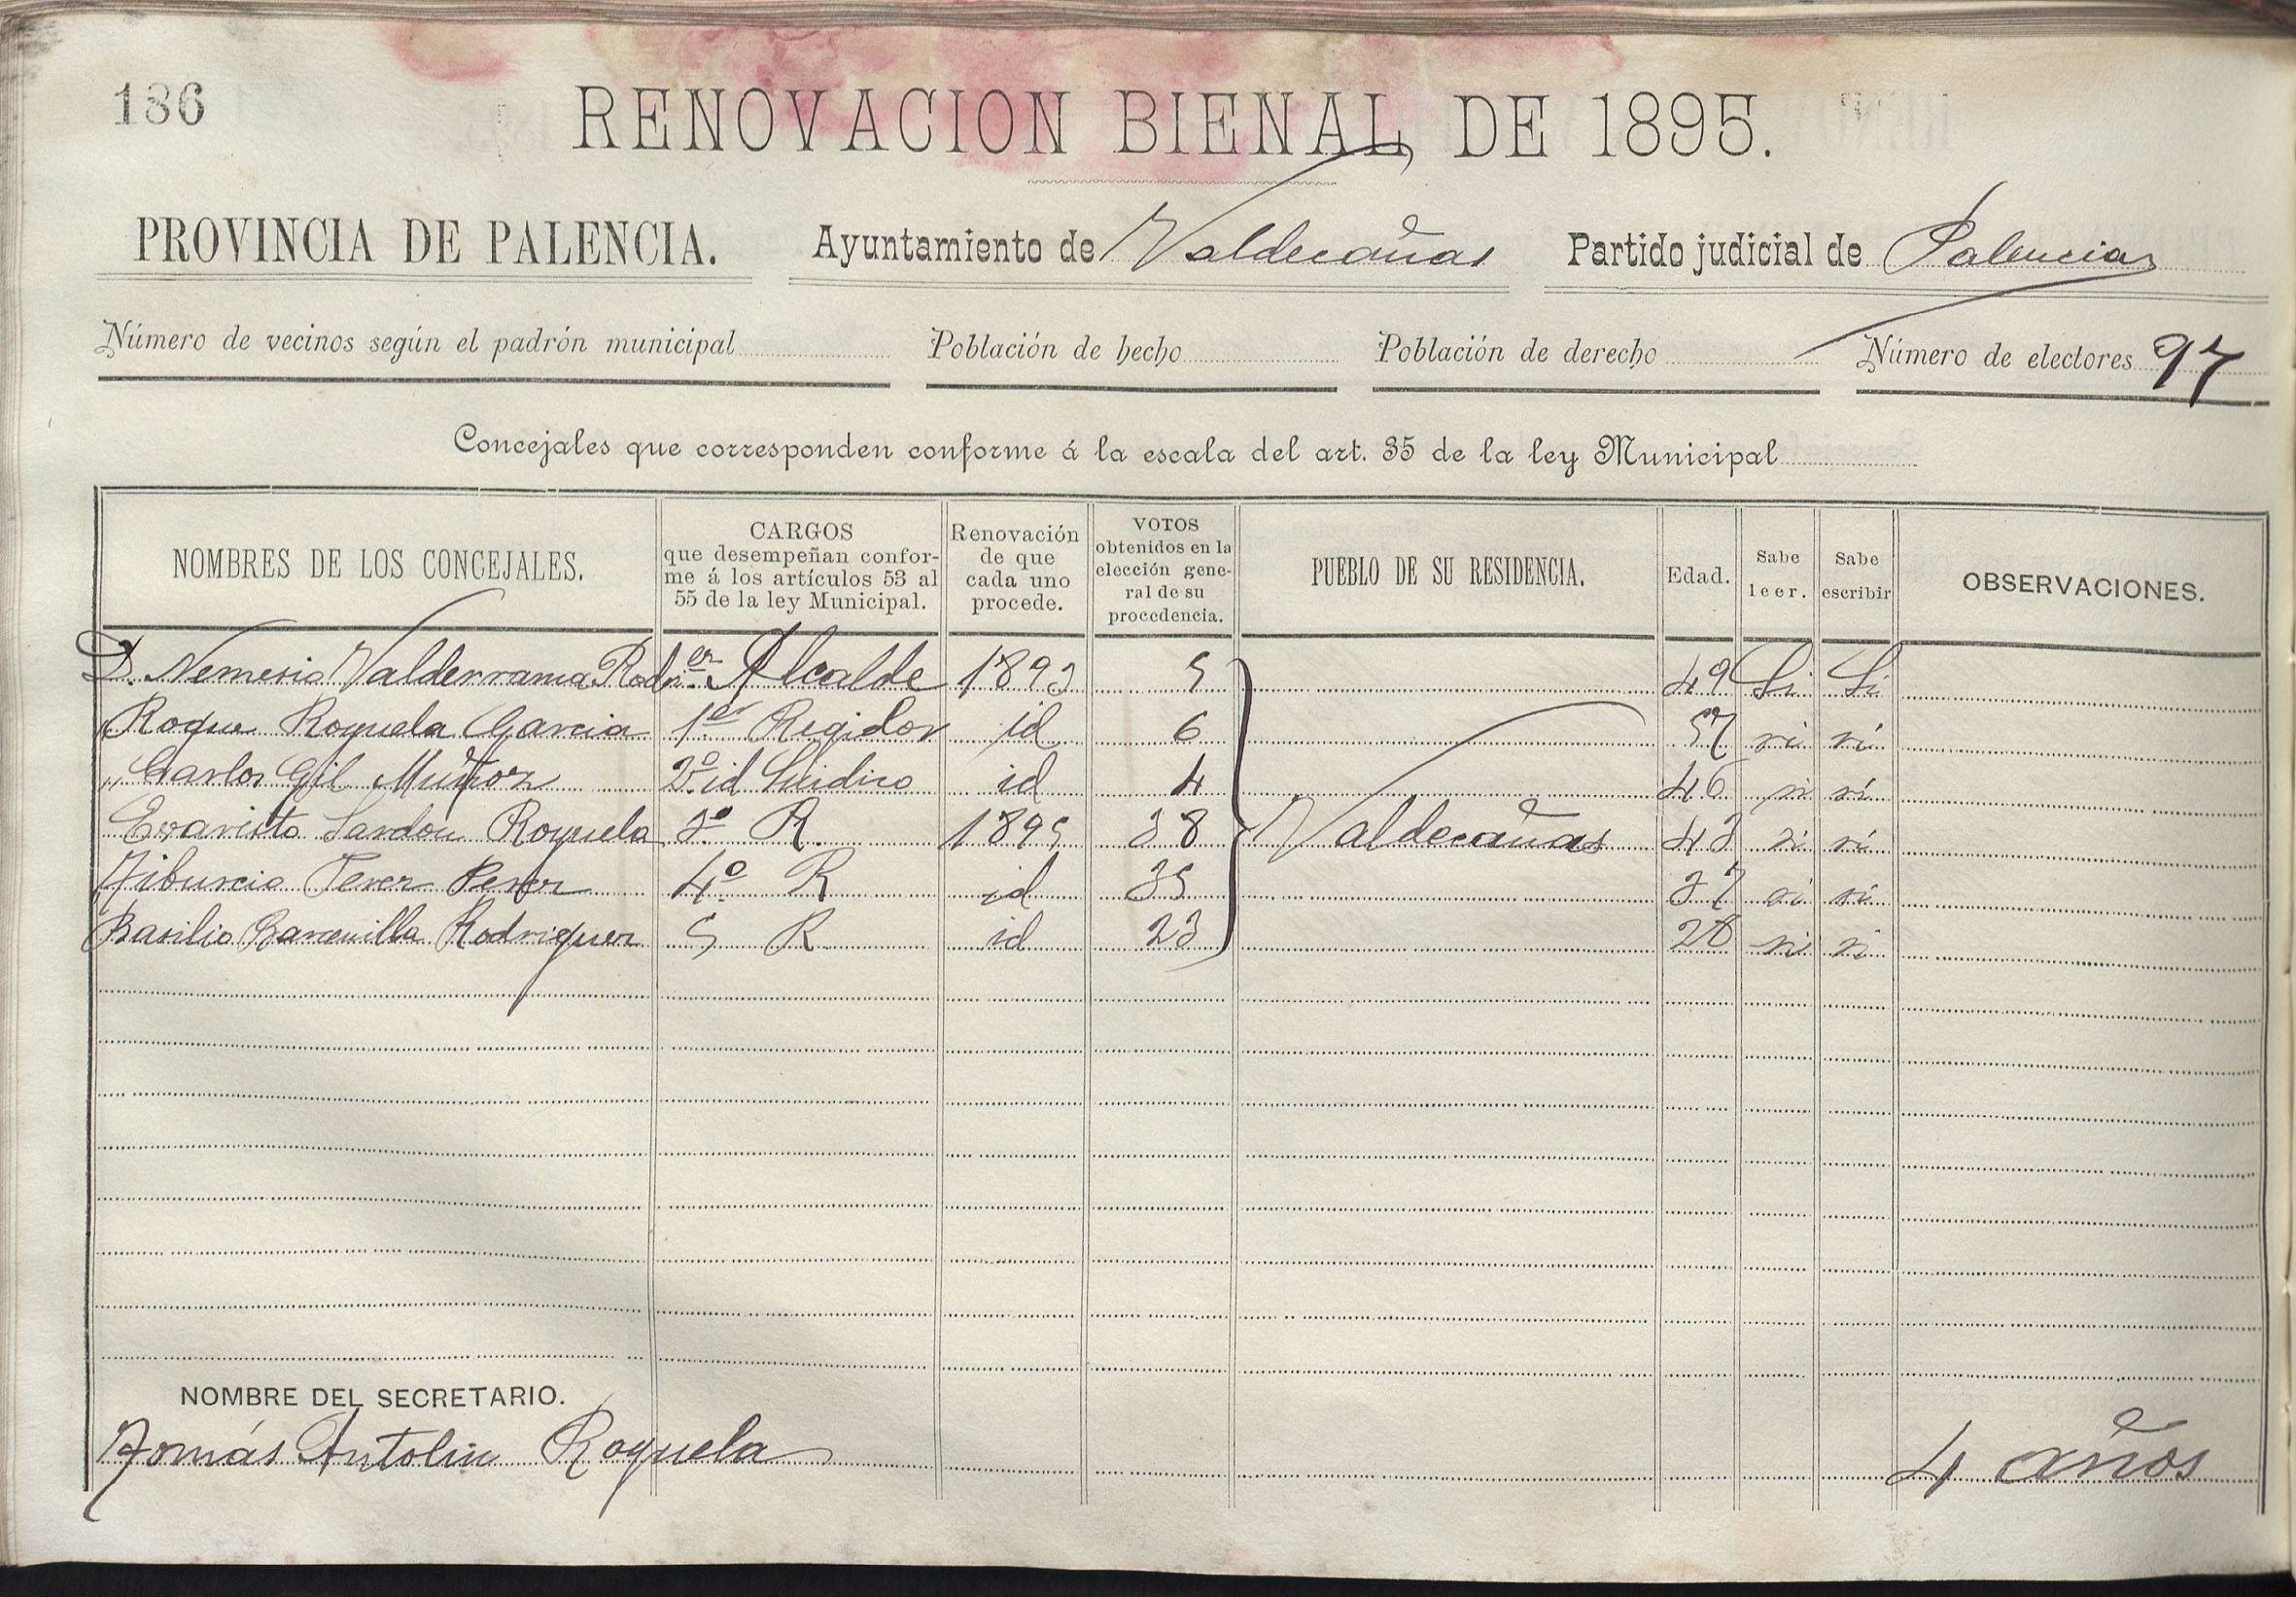 186
RENOVACION BIENAL DE 1895.
PROVINCIA DE PALENCIA. Ayuntamiento de Valdecañas Partido judicial de Palencia
Número de vecinos según el padrón municipal Población de hecho Población de derecho Número de electores 97
Concejales que corresponden conforme á la escala del art. 35 de la ley Municipal
NOMBRES DE LOS CONCEJALES. CARGOS que desempeñan conforme á los artículos 53 al 55 de la ley Municipal. Renovación de que cada uno procede. VOTOS obtenidos en la elección general de su procedencia. PUEBLO DE SU RESIDENCIA. Edad. Sabe leer. Sabe escribir OBSERVACIONES.
D. Nemesio Valderrama Rodr.ez Alcalde 1893 5 49 Si Si
Roque Royuela Garcia 1er Regidor id 6 57 si si
" Carlos Gil Muñoz 2º id Síndico id 4 46 si si
Evaristo Sardon Royuela 3º R. 1895 38 Valdecañas 43 si si
Tiburcio Perez Perez 4º R id 35 37 si si
Basilio Rodriguez 5 R id 23 28 si si
NOMBRE DEL SECRETARIO.
Tomás Antolin Royuela 4 años